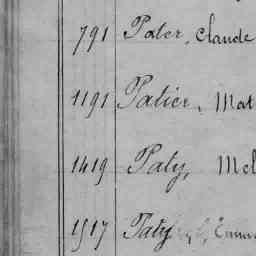 791 Pater, Claude
1191 Patier, Mat
1419 Paty, Mel
1517 Paty